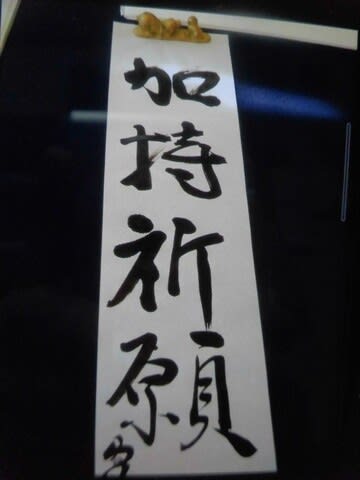 加持祈願